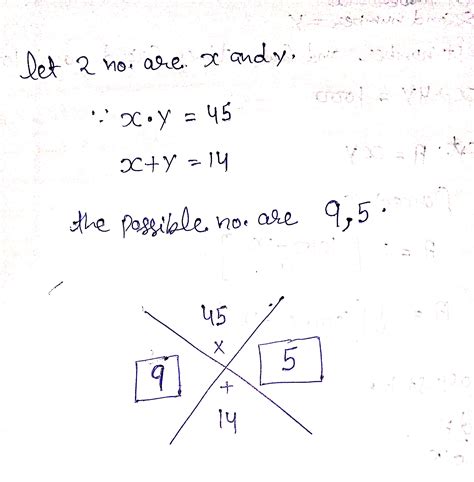 let 2 no. are x and y.
∵ x·y = 45
x+y = 14
the possible no. are 9,5.
45
×
9 5
+
14